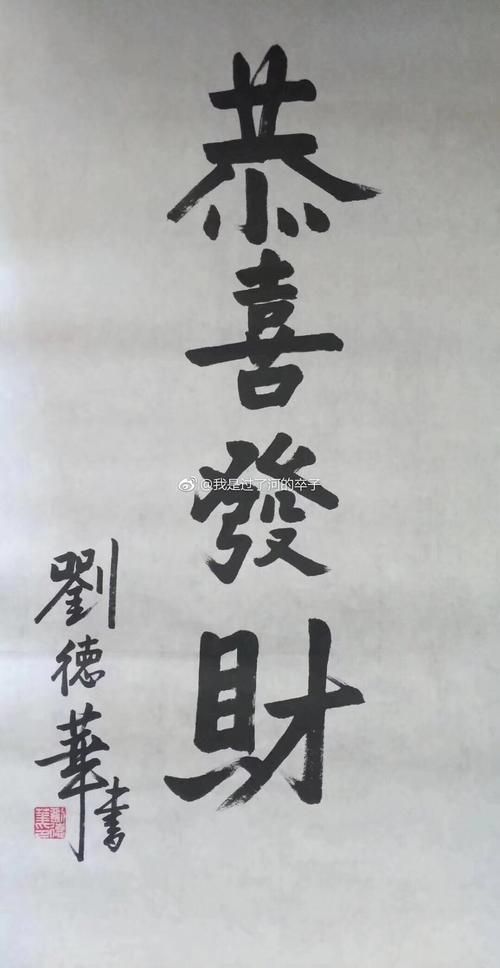 恭喜發財
劉德華书
@我是过了河的卒子